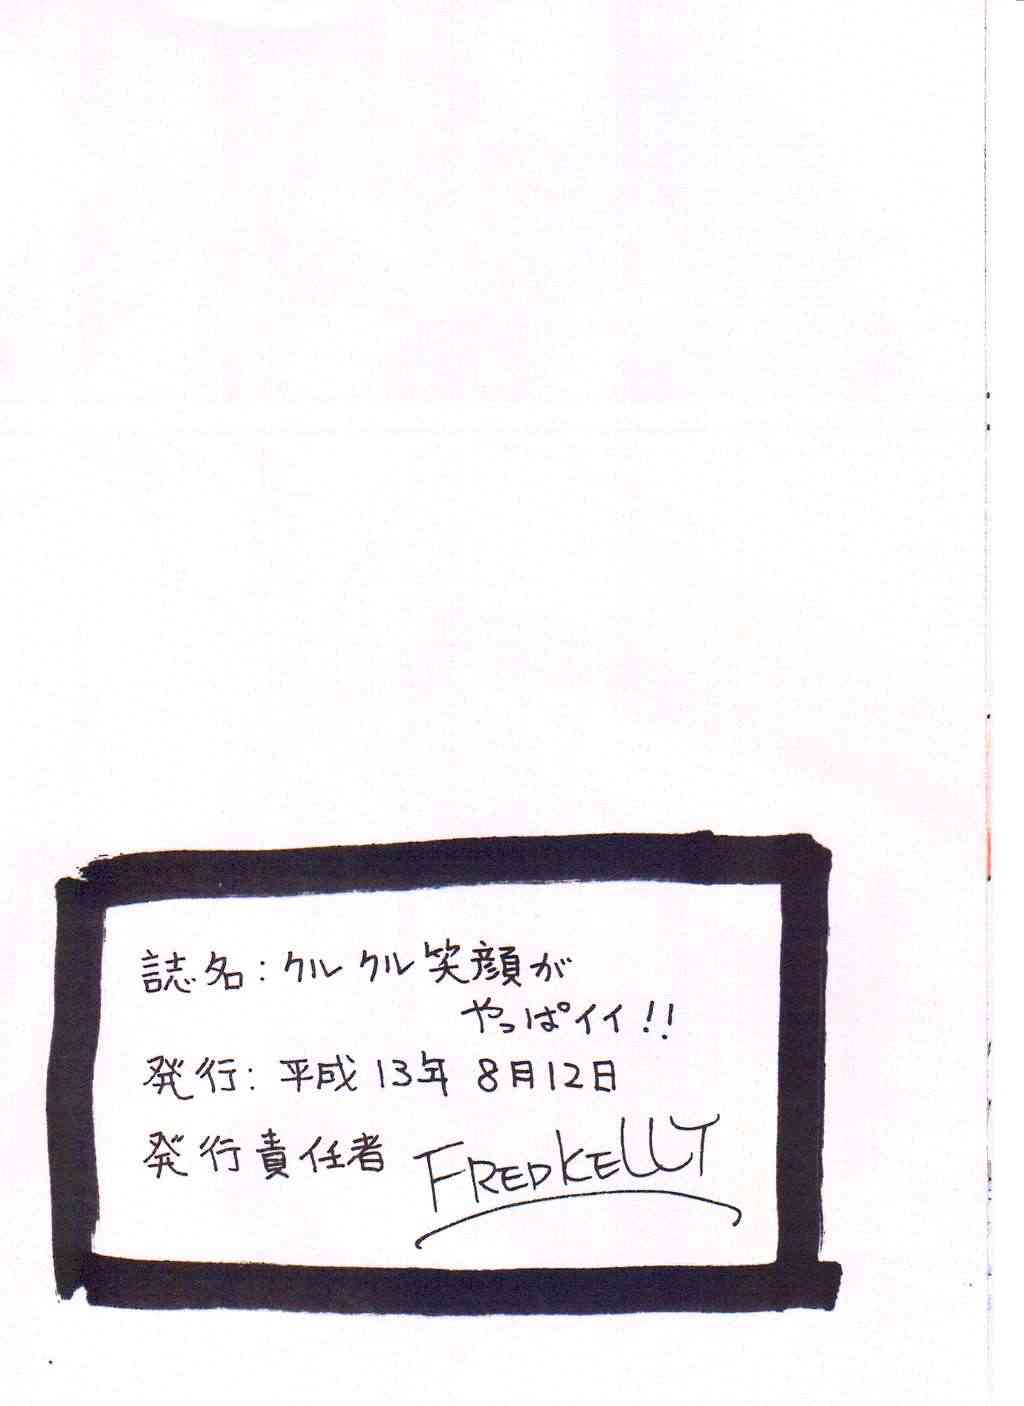 誌名:クルクル笑顔が
やっぱイイ!!
発行:平成13年 8月12日
発行責任者 FRED KELLY